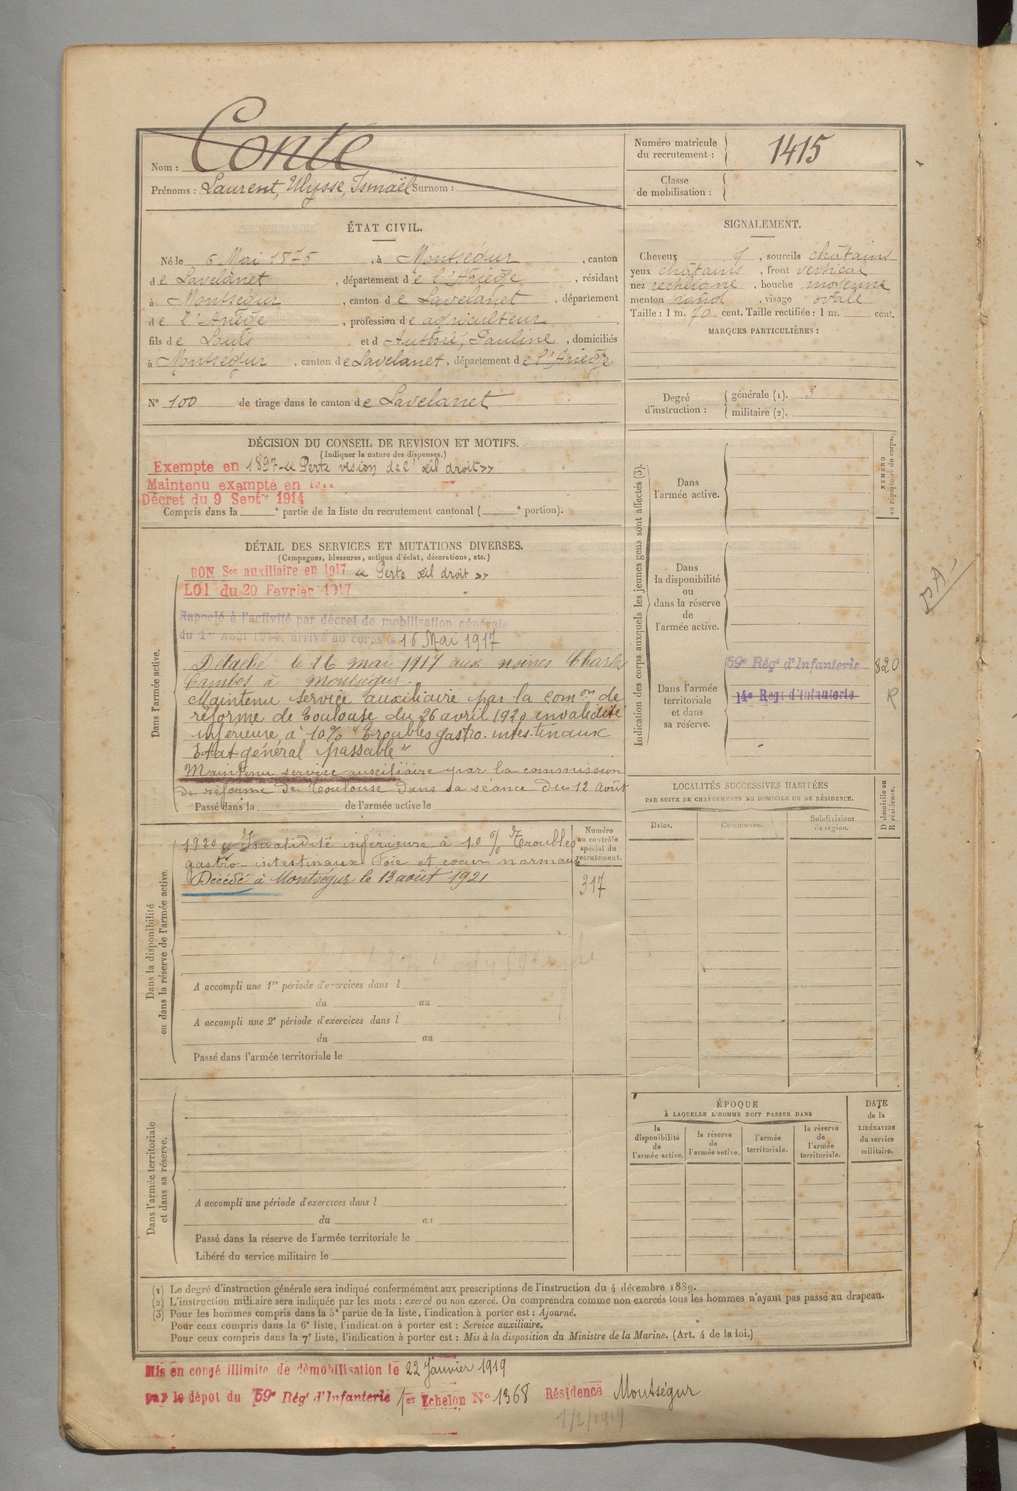 Nom : Conte
Prénoms : Laurent, Ulysse, Ismaël Surnom :
Numéro matricule du recrutement : 1415
Classe de mobilisation :
ÉTAT CIVIL.
Né le 6 Mai 1876, à Montségur, canton
de Lavelanet, département de l'Ariège, résidant
à Montségur, canton de Lavelanet, département
de l'Ariège, profession de agriculteur
fils de Louis et d Pauline, domiciliés
à Montségur, canton de Lavelanet, département de l'Ariège
N° 100 de tirage dans le canton de Lavelanet
SIGNALEMENT.
Cheveux, sourcils châtains
yeux châtains, front vertical
nez rectiligne, bouche moyenne
menton rond, visage ovale
Taille : 1 m. 70 cent. Taille rectifiée : 1 m. cent.
MARQUES PARTICULIÈRES :
Degré d'instruction : générale (1). militaire (2).
DÉCISION DU CONSEIL DE REVISION ET MOTIFS.
(Indiquer la nature des dispenses.)
Exempte en 1897 « Perte vision de l'œil droit »
Maintenu exempté en
Décret du 9 Septre 1914
Compris dans la e partie de la liste du recrutement cantonal ( e portion).
DÉTAIL DES SERVICES ET MUTATIONS DIVERSES.
(Campagnes, blessures, actions d'éclat, décorations, etc.)
Dans l'armée active.
BON Sce auxiliaire en 1917 « Perte œil droit »
LOI du 20 Fevrier 1917
Rappelé à l'activité par décret de mobilisation générale
du 1er Août 1914, arrivé au corps le 16 Mai 1917
Détaché le 16 mai 1917 aux mines Charles
Cambos à Montségur.
Maintenu service auxiliaire par la comon de
réforme de Toulouse du 26 avril 1920 invalidité
inférieure à 10% "Troubles gastro-intestinaux
Etat général passable"
Maintenu service auxiliaire par la commission
de réforme de Toulouse dans sa séance du 12 Août
Passé dans la de l'armée active le
Indication des corps auxquels les jeunes gens sont affectés (3).
Dans l'armée active.
Dans la disponibilité ou dans la réserve de l'armée active.
Dans l'armée territoriale et dans sa réserve.
59e Régt d'Infanterie 820
14e Regt d'Infanterie R
NUMÉRO au répertoire du corps.
Dans la disponibilité ou dans la réserve de l'armée active.
1920 Invalidité inférieure à 10 % Troubles
gastro-intestinaux Foie et coeur normaux
Décédé à Montségur le 13 août 1921
Numéro au contrôle spécial du recrutement.
317
A accompli une 1re période d'exercices dans l
du au
A accompli une 2e période d'exercices dans l
du au
Passé dans l'armée territoriale le
LOCALITÉS SUCCESSIVES HABITÉES
PAR SUITE DE CHANGEMENTS DE DOMICILE OU DE RÉSIDENCE.
Dates. Communes. Subdivisions de région. D domicile ou R résidence.
Dans l'armée territoriale et dans sa réserve.
A accompli une période d'exercices dans l
du au
Passé dans la réserve de l'armée territoriale le
Libéré du service militaire le
ÉPOQUE
À LAQUELLE L'HOMME DOIT PASSER DANS
la disponibilité de l'armée active. la réserve de l'armée active. l'armée territoriale. la réserve de l'armée territoriale.
DATE de la LIBÉRATION du service militaire.
(1) Le degré d'instruction générale sera indiqué conformément aux prescriptions de l'instruction du 4 décembre 1889.
(2) L'instruction militaire sera indiquée par les mots : exercé ou non exercé. On comprendra comme non exercés tous les hommes n'ayant pas passé au drapeau.
(3) Pour les hommes compris dans la 5e partie de la liste, l'indication à porter est : Ajourné.
Pour ceux compris dans la 6e liste, l'indication à porter est : Service auxiliaire.
Pour ceux compris dans la 7e liste, l'indication à porter est : Mis à la disposition du Ministre de la Marine. (Art. 4 de la loi.)
Mis en congé illimité de démobilisation le 22 Janvier 1919
par le dépot du 59e Régt d'Infanterie 1er Echelon N° 1368 Résidence Montségur
1/2/1919